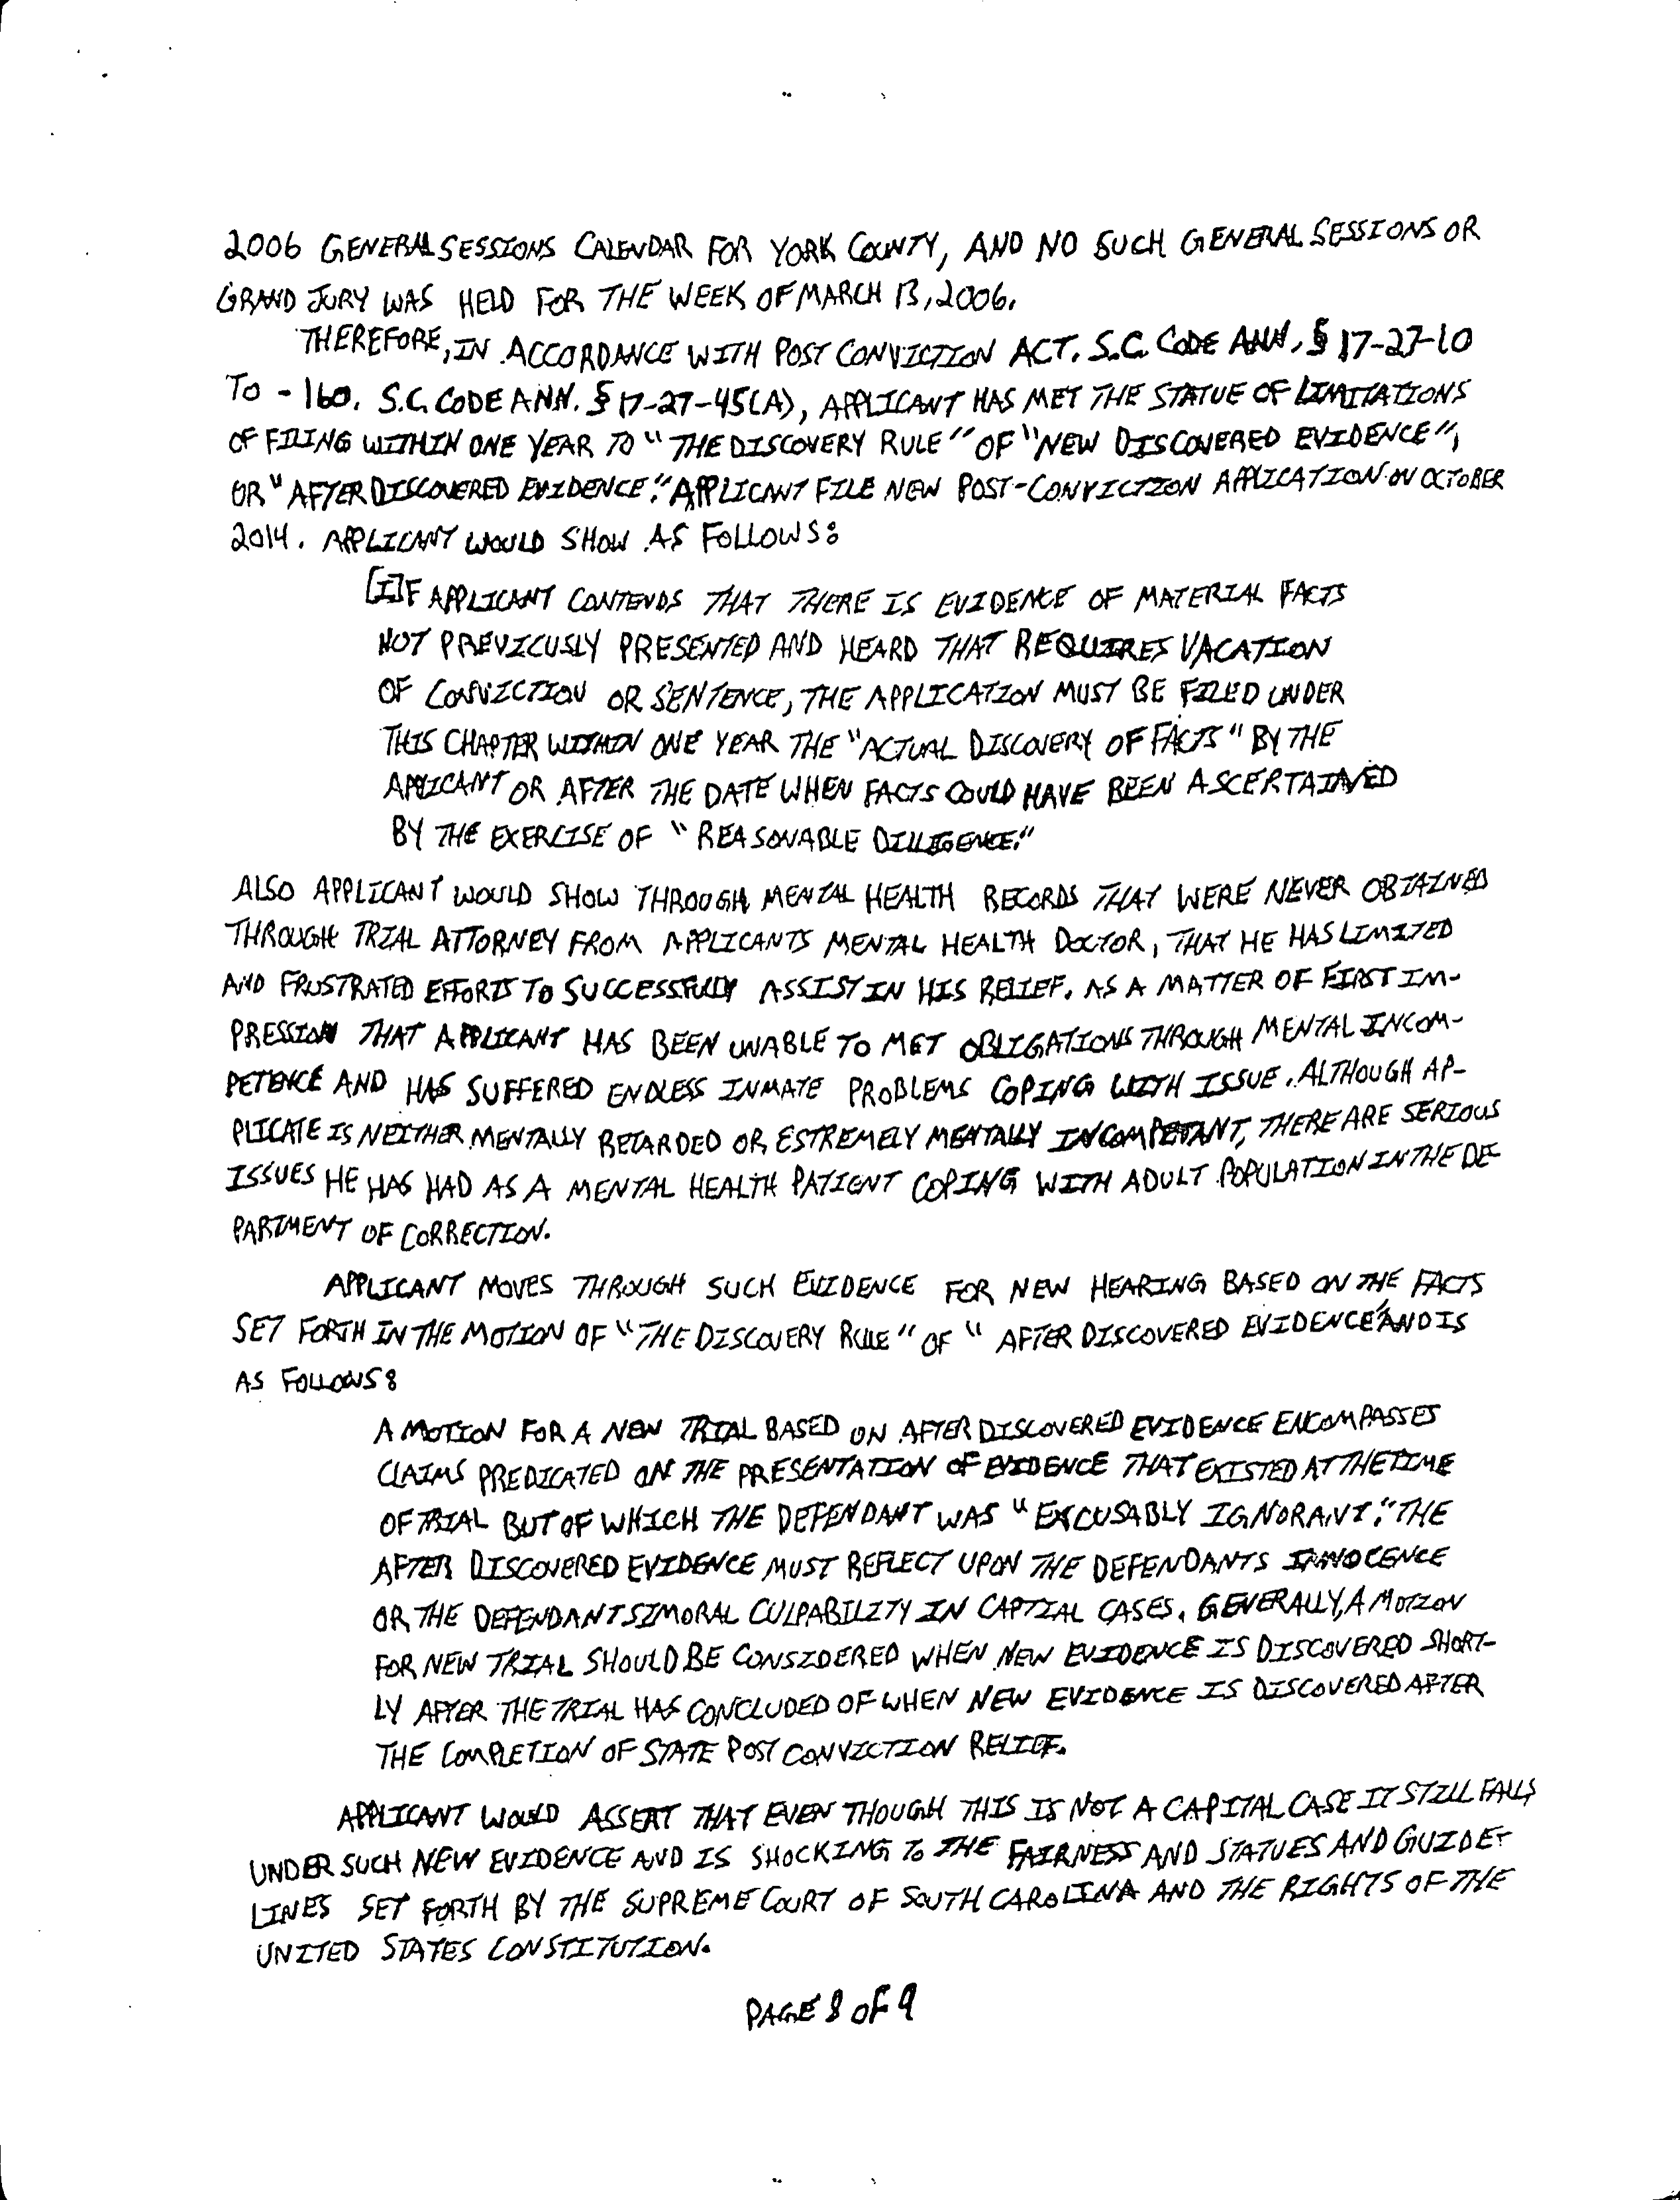 2006 GENERAL SESSIONS CALENDAR FOR YORK COUNTY, AND NO SUCH GENERAL SESSIONS OR
GRAND JURY WAS HELD FOR THE WEEK OF MARCH 13, 2006.
THEREFORE, IN ACCORDANCE WITH POST CONVICTION ACT. S.C. CODE ANN. § 17-27-10
TO - 160. S.C. CODE ANN. § 17-27-45(A), APPLICANT HAS MET THE STATUE OF LIMITATIONS
OF FILING WITHIN ONE YEAR TO "THE DISCOVERY RULE" OF "NEW DISCOVERED EVIDENCE",
OR "AFTER DISCOVERED EVIDENCE." APPLICANT FILE NEW POST-CONVICTION APPLICATION ON OCTOBER
2014. APPLICANT WOULD SHOW AS FOLLOWS:
[I]F APPLICANT CONTENDS THAT THERE IS EVIDENCE OF MATERIAL FACTS
NOT PREVICUSLY PRESENTED AND HEARD THAT REQUIRES VACATION
OF CONVICTION OR SENTENCE, THE APPLICATION MUST BE FILED UNDER
THIS CHAPTER WITHIN ONE YEAR THE "ACTUAL DISCOVERY OF FACTS" BY THE
APPLICANT OR AFTER THE DATE WHEN FACTS COULD HAVE BEEN ASCERTAINED
BY THE EXERCISE OF "REASONABLE DILLIGENCE."
ALSO APPLICANT WOULD SHOW THROUGH MENTAL HEALTH RECORDS THAT WERE NEVER OBTAINED
THROUGH TRIAL ATTORNEY FROM APPLICANTS MENTAL HEALTH DOCTOR, THAT HE HAS LIMITED
AND FRUSTRATED EFFORTS TO SUCCESSFULLY ASSIST IN HIS RELIEF. AS A MATTER OF FIRST IM-
PRESSION THAT APPLICANT HAS BEEN UNABLE TO MET OBLIGATIONS THROUGH MENTAL INCOM-
PETENCE AND HAS SUFFERED ENDLESS INMATE PROBLEMS COPING WITH ISSUE. ALTHOUGH AP-
PLICATE IS NEITHER MENTALLY RETARDED OR ESTREMELY MENTALLY INCOMPETANT, THERE ARE SERIOUS
ISSUES HE HAS HAD AS A MENTAL HEALTH PATIENT COPING WITH ADULT POPULATION IN THE DE-
PARTMENT OF CORRECTION.
APPLICANT MOVES THROUGH SUCH EVIDENCE FOR NEW HEARING BASED ON THE FACTS
SET FORTH IN THE MOTION OF "THE DISCOVERY RULE" OF "AFTER DISCOVERED EVIDENCE" AND IS
AS FOLLOWS:
A MOTION FOR A NEW TRIAL BASED ON AFTER DISCOVERED EVIDENCE ENCOMPASSES
CLAIMS PREDICATED ON THE PRESENTATION OF EVIDENCE THAT EXISTED AT THE TIME
OF TRIAL BUT OF WHICH THE DEFENDANT WAS "EXCUSABLY IGNORANT." THE
AFTER DISCOVERED EVIDENCE MUST REFLECT UPON THE DEFENDANTS INNOCENCE
OR THE DEFENDANTS IMORAL CULPABILITY IN CAPTIAL CASES. GENERALLY, A MOTION
FOR NEW TRIAL SHOULD BE CONSIDERED WHEN NEW EVIDENCE IS DISCOVERED SHORT-
LY AFTER THE TRIAL HAS CONCLUDED OF WHEN NEW EVIDENCE IS DISCOVERED AFTER
THE COMPLETION OF STATE POST CONVICTION RELIEF.
APPLICANT WOULD ASSERT THAT EVEN THOUGH THIS IS NOT A CAPITAL CASE IT STILL FALLS
UNDER SUCH NEW EVIDENCE AND IS SHOCKING TO THE FAIRNESS AND STATUES AND GUIDE-
LINES SET FORTH BY THE SUPREME COURT OF SOUTH CAROLINA AND THE RIGHTS OF THE
UNITED STATES CONSTITUTION.
PAGE 8 OF 9